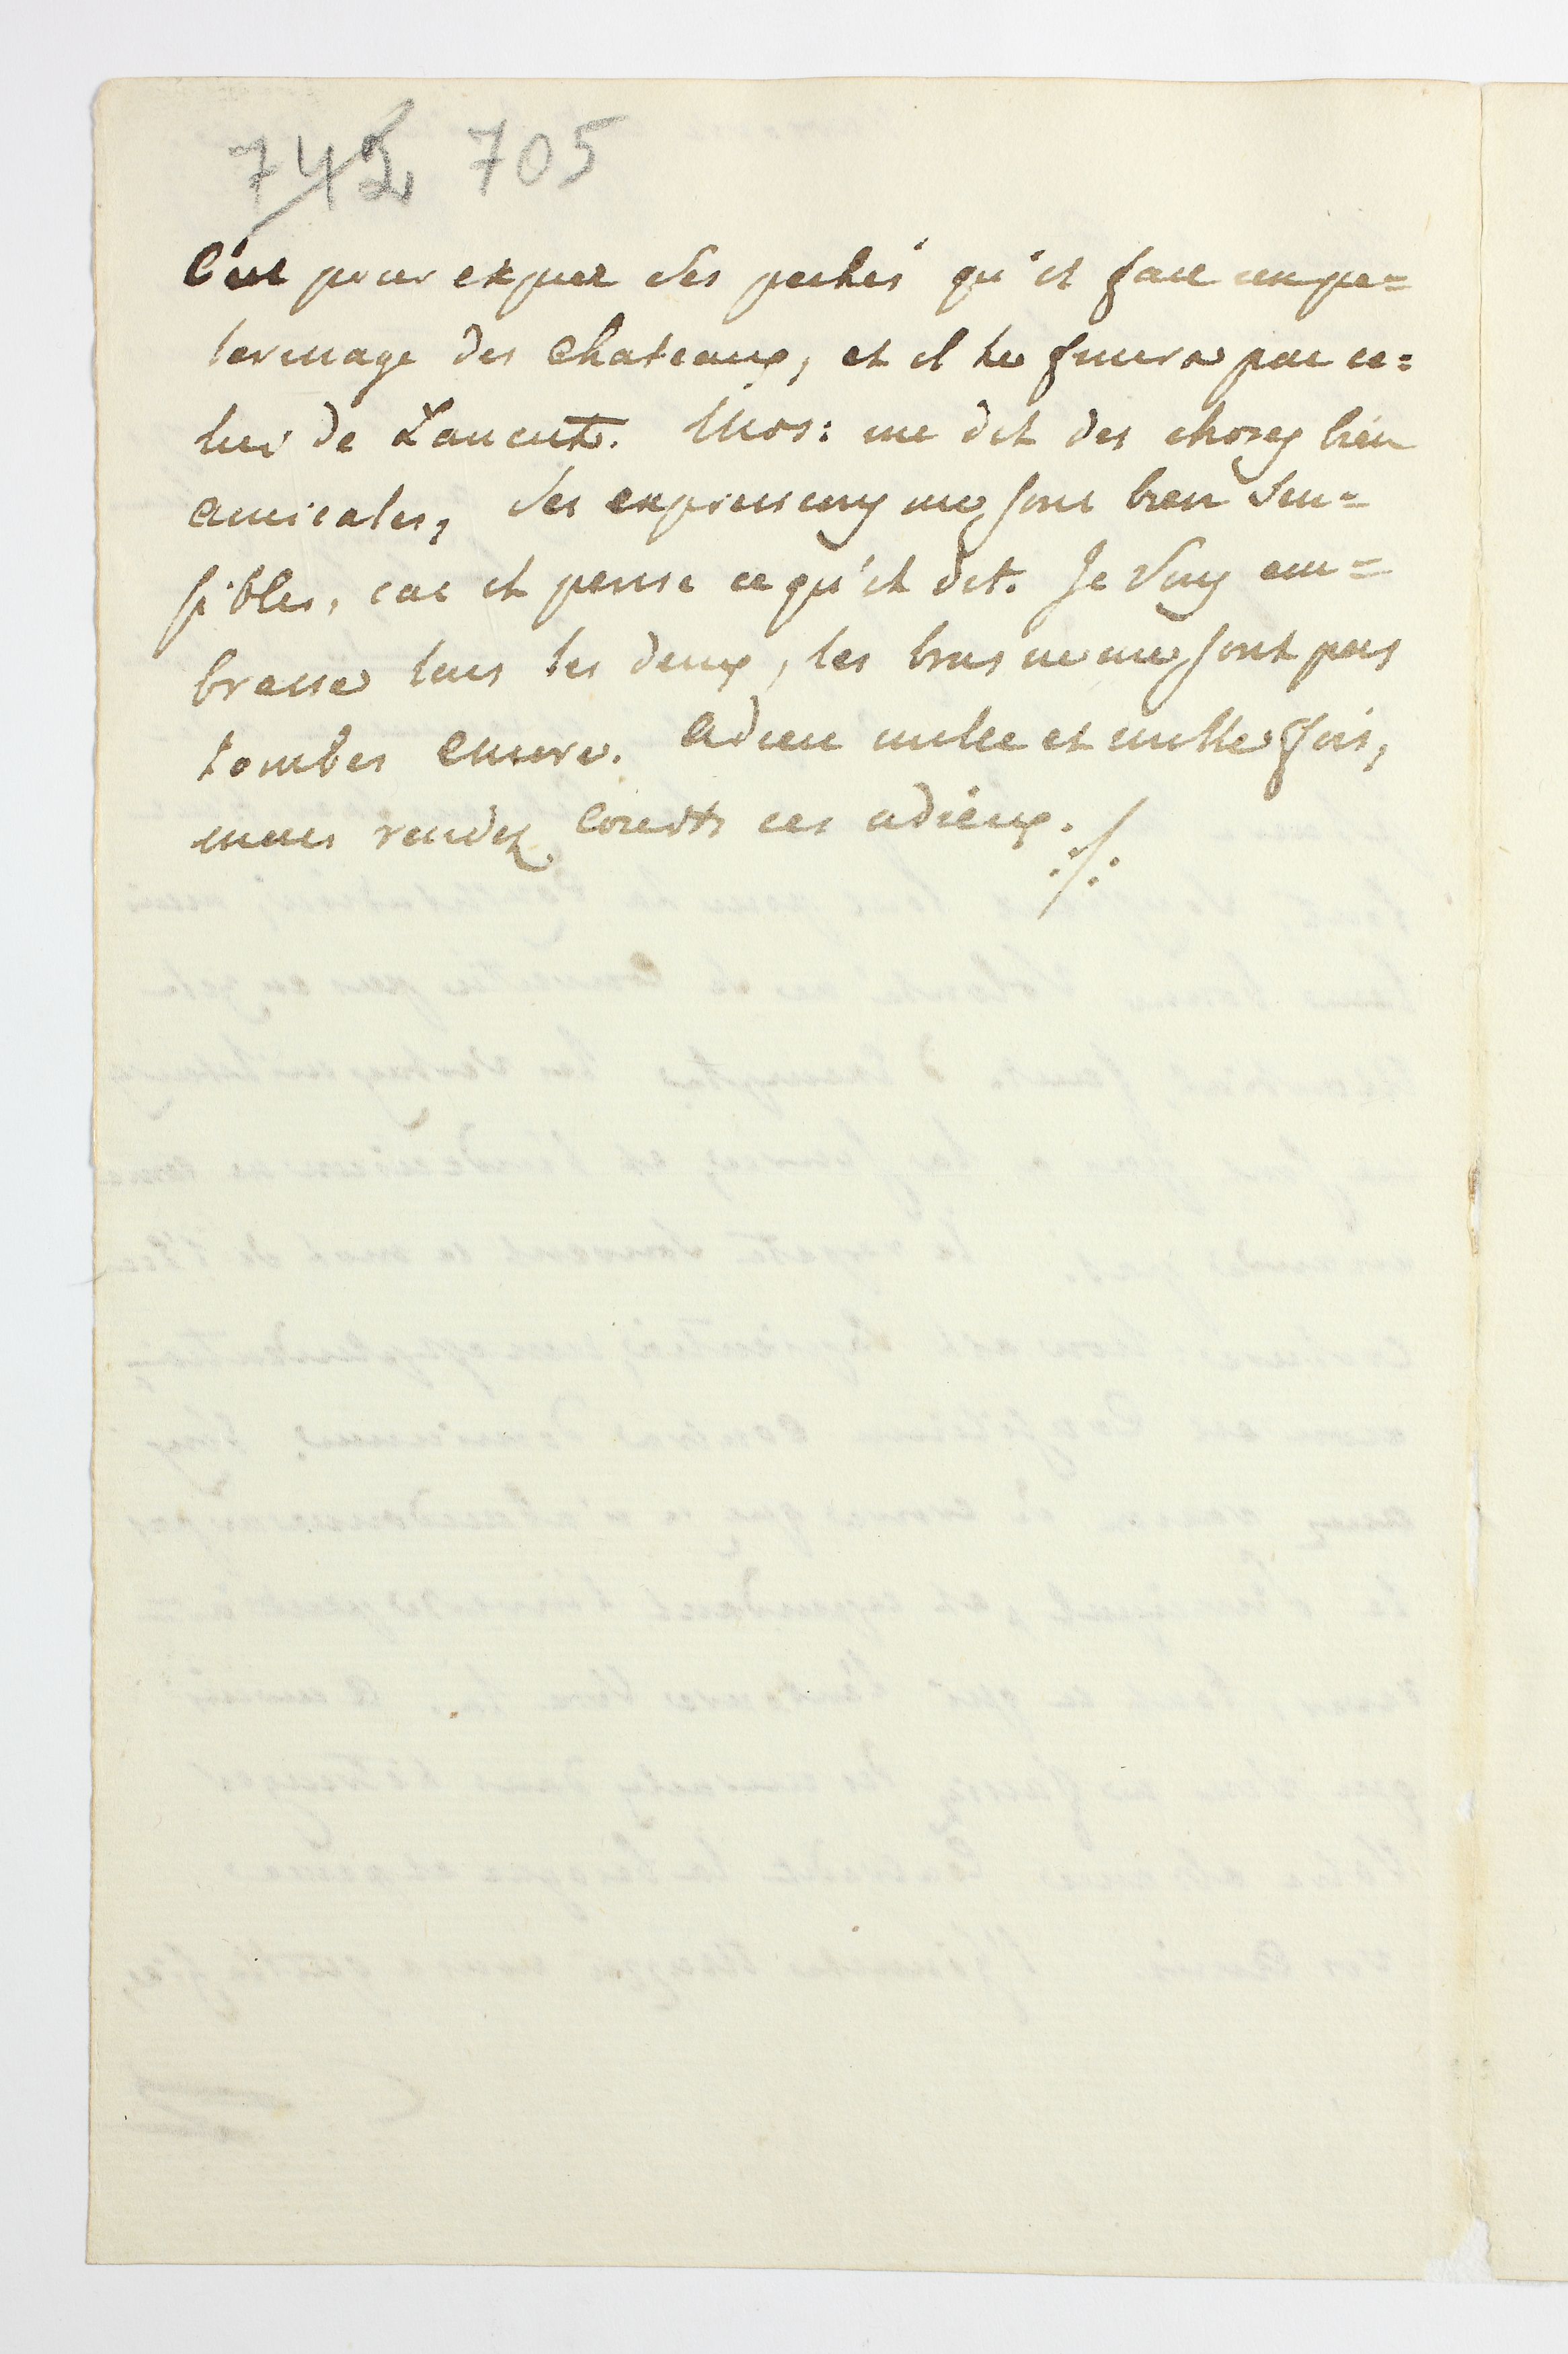 742 705
C'est pour expier ses pechés qu'il fait un pe=
lerinage des chateaux, et il le finera par ce=
lui de Lancut. Mos: me dit des choses bien
amicales, ses expressions me sont bien sen=
sibles, car il pense ce qu'il dit. Je vous em=
brasse tous les deux, les bras ne me sont pas
tombés encore. Adieu mille et mille fois,
mais rendez courts ces adieux.